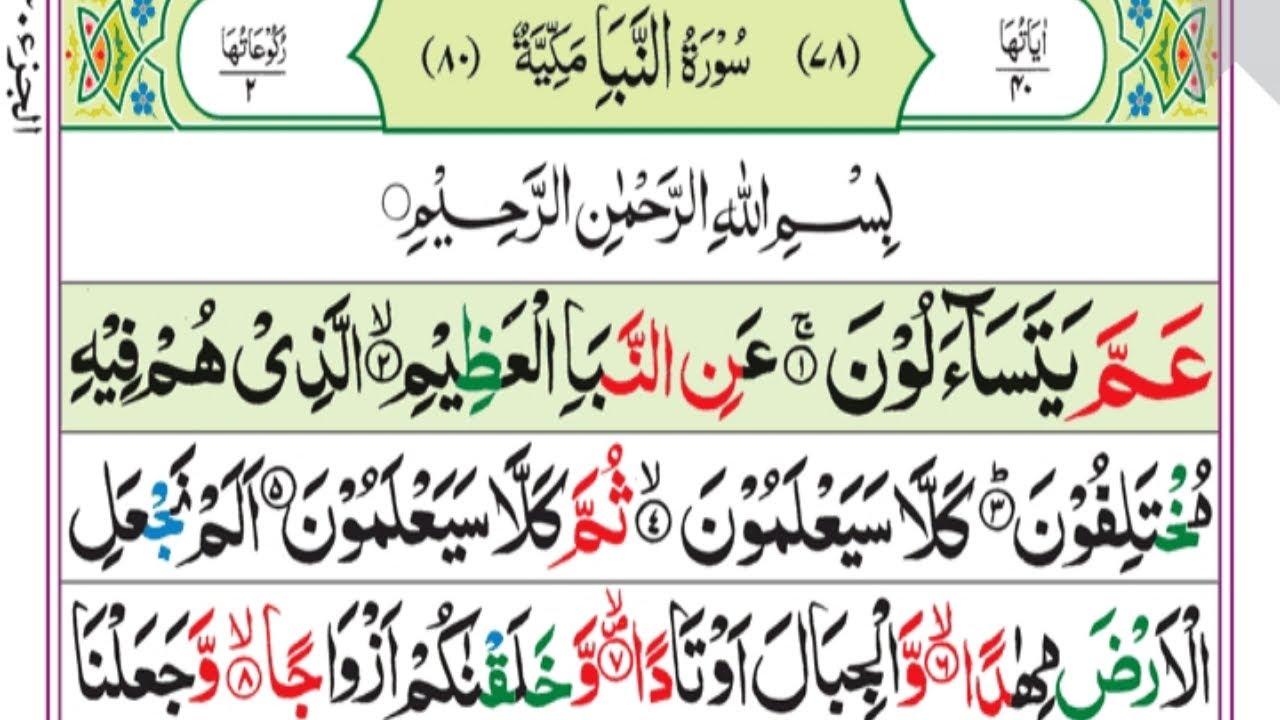 اٰيَاتُهَا ٤٠ (٧٨) سُوْرَةُ النَّبَاِ مَكِّيَّةٌ (٨٠) رُكُوْعَاتُهَا ٢
بِسْمِ اللّٰهِ الرَّحْمٰنِ الرَّحِيْمِ
عَمَّ يَتَسَآءَلُوْنَ ۚ ۝١ عَنِ النَّبَاِ الْعَظِيْمِ ۙ ۝٢ الَّذِىْ هُمْ فِيْهِ
مُخْتَلِفُوْنَ ؕ ۝٣ كَلَّا سَيَعْلَمُوْنَ ۙ ۝٤ ثُمَّ كَلَّا سَيَعْلَمُوْنَ ۝٥ اَلَمْ نَجْعَلِ
الْاَرْضَ مِهٰدًا ۙ ۝٦ وَّالْجِبَالَ اَوْتَادًا ۙ ۝٧ وَّخَلَقْنٰكُمْ اَزْوَاجًا ۙ ۝٨ وَّجَعَلْنَا